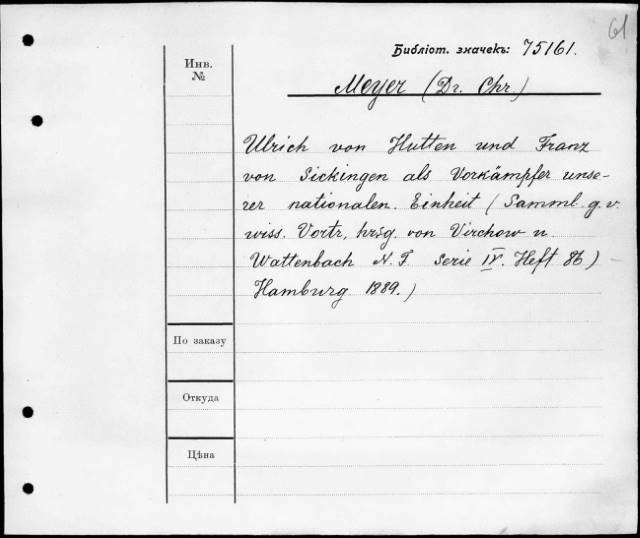 61
Библіот. значекъ: 75161.
Инв.
№
Meyer (Dr. Chr.)
Ulrich von Hutten und Franz
von Sickingen als Vorkämpfer unse-
rer nationalen. Einheit (Samml. g. v.
wiss. Vortr, hrsg. von Virchow u.
Wattenbach N. F. Serie IV. Heft 86)
Hamburg 1889.)
По заказу
Откуда
Цѣна